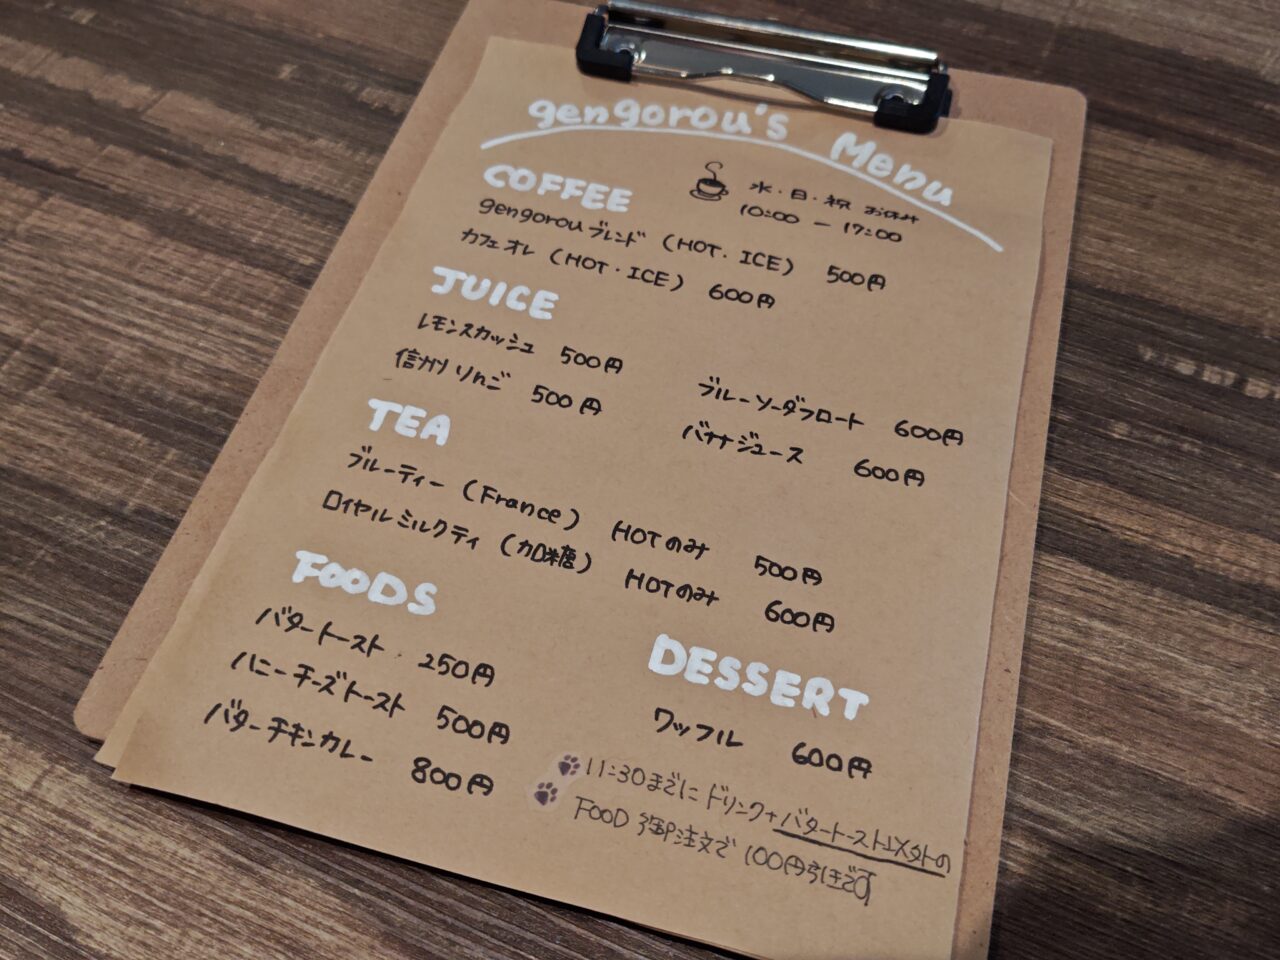 gengorou's Menu
水・日・祝 お休み
10:00 — 17:00
COFFEE
gengorouブレンド (HOT・ICE) 500円
カフェオレ (HOT・ICE) 600円
JUICE
レモンスカッシュ 500円
信州りんご 500円
ブルーソーダフロート 600円
バナナジュース 600円
TEA
ブルーティー (France) HOTのみ 500円
ロイヤルミルクティ (加糖) HOTのみ 600円
FOODS
バタートースト 250円
ハニーチーズトースト 500円
バターチキンカレー 800円
DESSERT
ワッフル 600円
11:30までにドリンク+バタートースト以外の
FOOD 御注文で 100円引きです